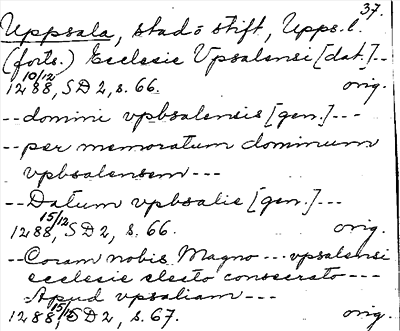 37.
Uppsala, stad o stift, Upps. l.
(forts.) Ecclesie Vpsalensi [dat.]--
1288 10/12, SD 2, s. 66. orig.
--domini vpbsalensis [gen.]---
--per memoratum dominum
vpbsalensem ---
--Datum vpbsalie [gen.]---
1288 15/12, SD 2, s. 66. orig.
--Coram nobis Magno --- vpsalensi
ecclesie electo consecrato ---
-Apud vpsaliam ---
1288 15/12, SD 2, s. 67. orig.